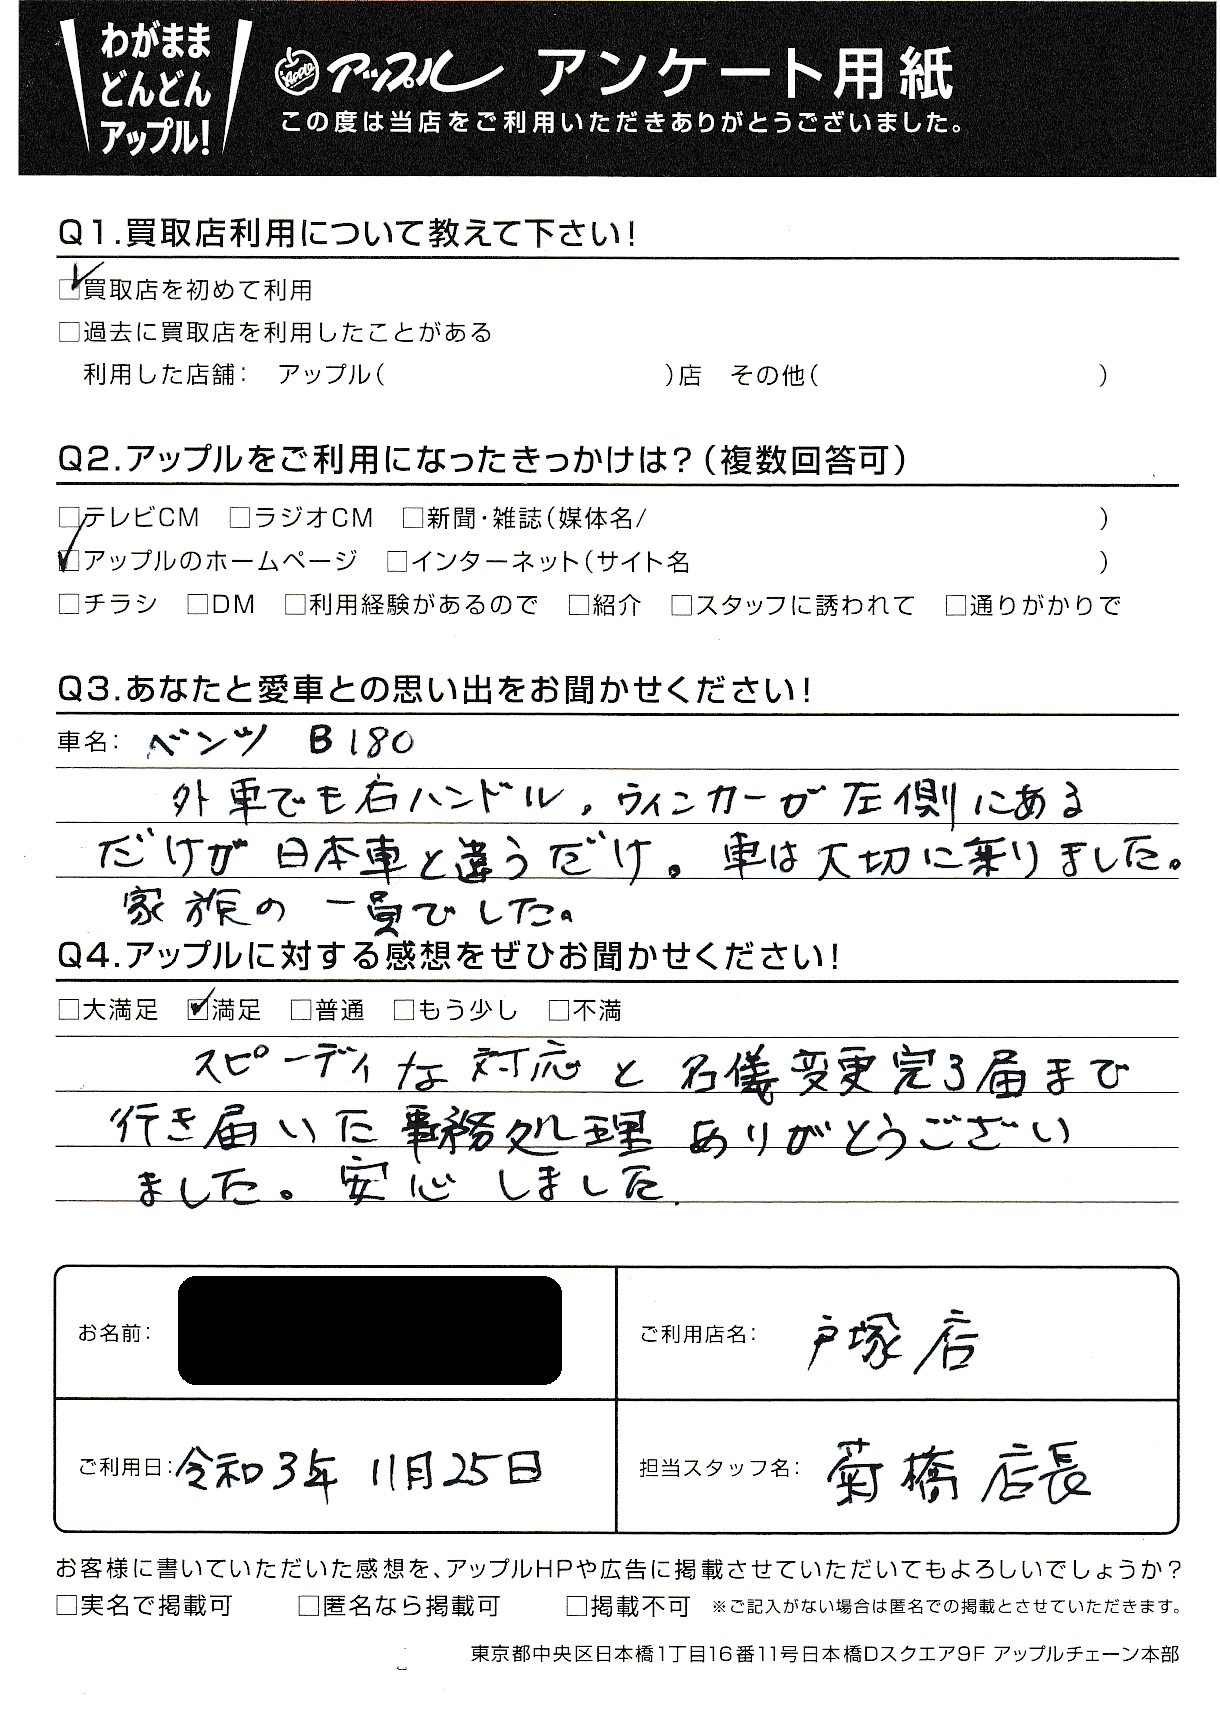 わがまま
どんどん
アップル!
Apple アップル アンケート用紙
この度は当店をご利用いただきありがとうございました。
Q1.買取店利用について教えて下さい!
□買取店を初めて利用
□過去に買取店を利用したことがある
利用した店舗: アップル( )店 その他( )
Q2.アップルをご利用になったきっかけは?(複数回答可)
□テレビCM □ラジオCM □新聞・雑誌(媒体名/ )
□アップルのホームページ □インターネット(サイト名 )
□チラシ □DM □利用経験があるので □紹介 □スタッフに誘われて □通りがかりで
Q3.あなたと愛車との思い出をお聞かせください!
車名: ベンツ B180
外車でも右ハンドル、ウィンカーが左側にある
だけが日本車と違うだけ。車は大切に乗りました。
家族の一員でした。
Q4.アップルに対する感想をぜひお聞かせください!
□大満足 ☑満足 □普通 □もう少し □不満
スピーディな対応と名儀変更完了届まで
行き届いた事務処理ありがとうござい
ました。安心しました.
お名前:
ご利用店名: 戸塚店
ご利用日: 令和3年11月25日
担当スタッフ名: 菊橋店長
お客様に書いていただいた感想を、アップルHPや広告に掲載させていただいてもよろしいでしょうか?
□実名で掲載可 □匿名なら掲載可 □掲載不可 ※ご記入がない場合は匿名での掲載とさせていただきます。
東京都中央区日本橋1丁目16番11号日本橋Dスクエア9F アップルチェーン本部